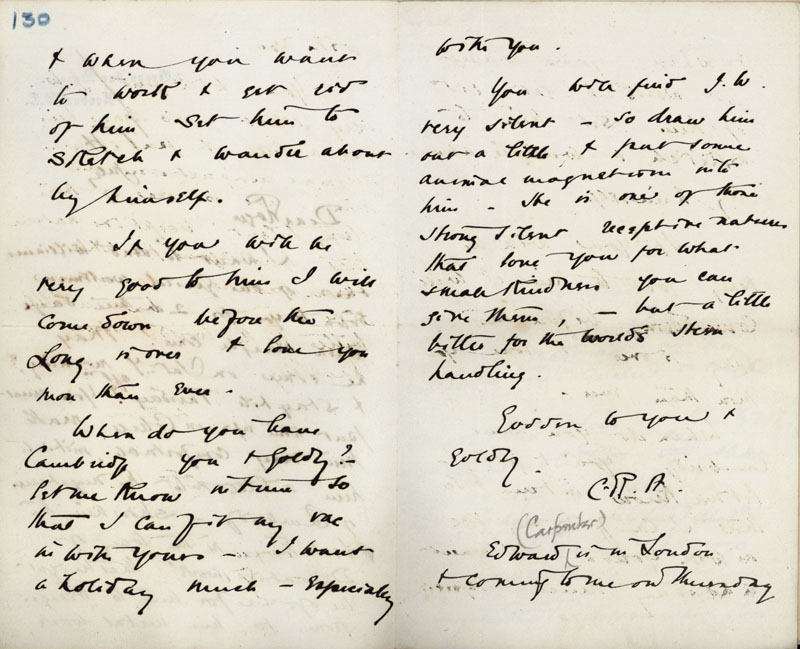 130
& when you want
to work & get rid
of him set him to
sketch & wander about
by himself.
If you will be
very good to him I will
come down before the
Long is over & love you
more than ever.
When do you leave
Cambridge you & Goldy? –
let me know in time so
that I can fit my vac
in with yours – I want
a holiday much – especially
with you.
You will find J.W.
very silent – so draw him
out a little & put some
animal magnetism into
him – He is one of those
strong silent receptive natures
that love you for what
small kindness you can
give them, – but a little
bitter for the world's stern
handling.
to you &
Goldy.
C.R.A.
(Carpenter)
Edward is in London
& coming to me on Thursday